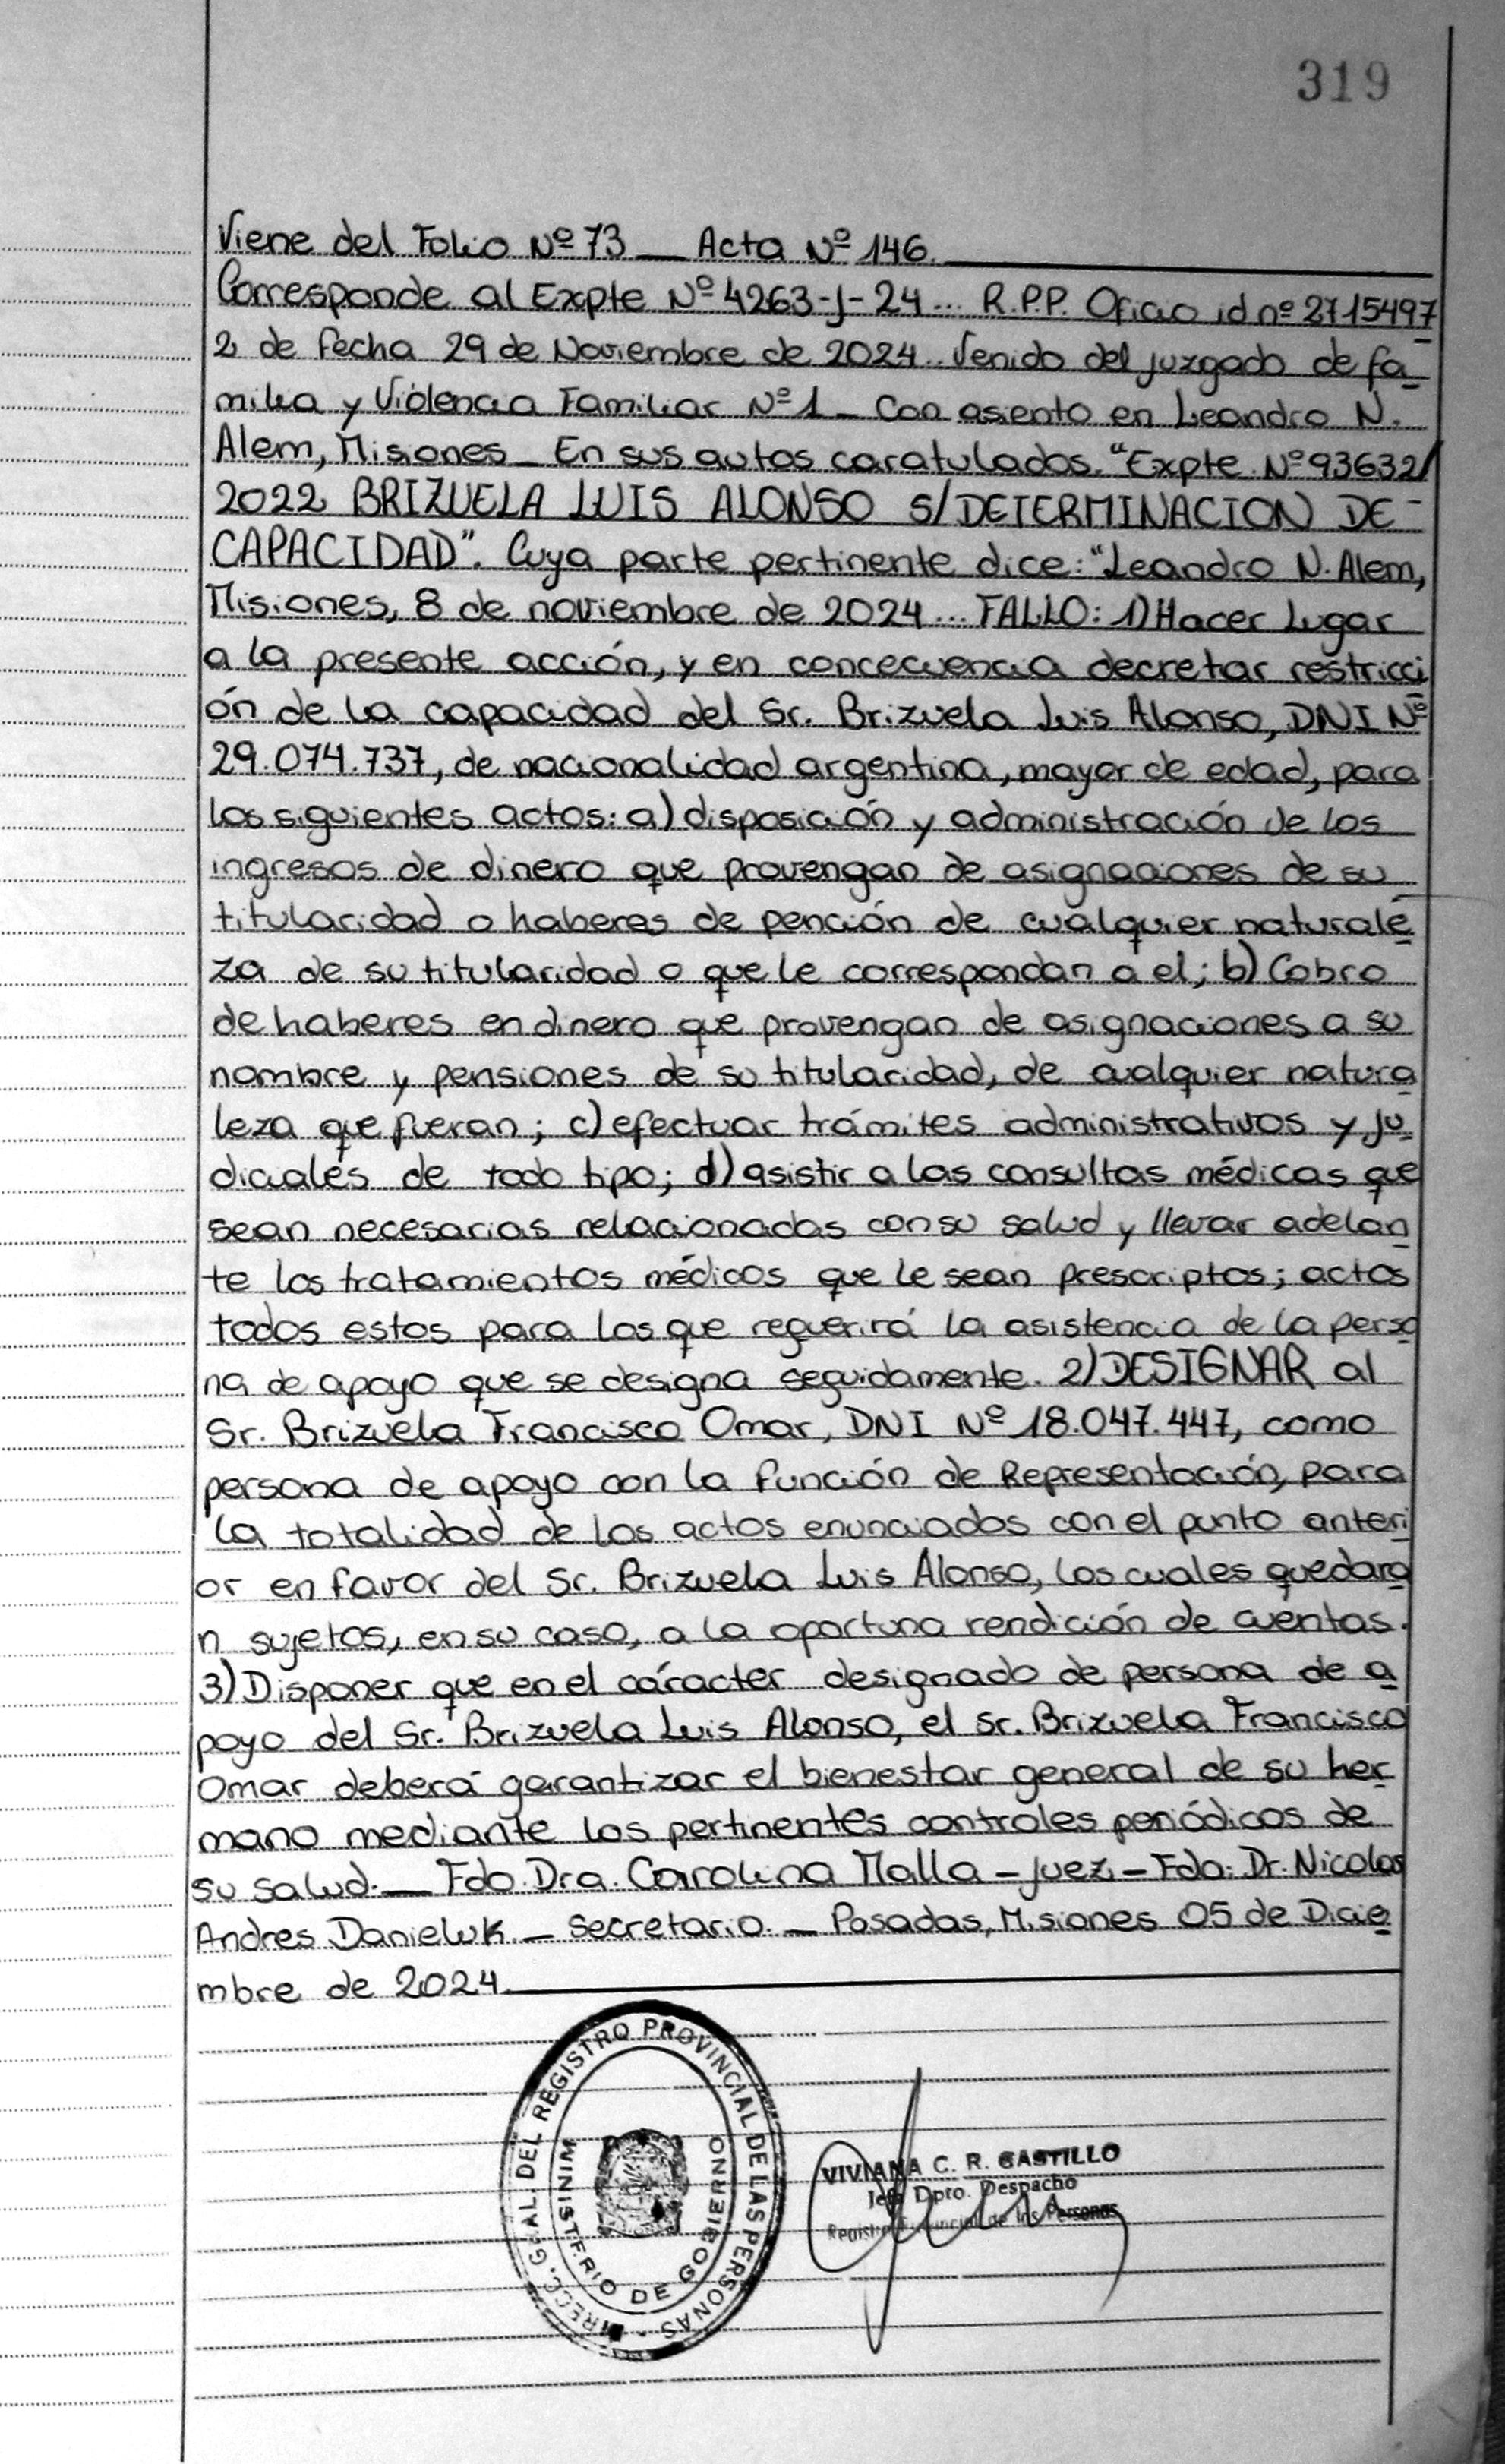 319
Viene del Folio Nº 73 — Acta Nº 146.
Corresponde al Expte Nº 4263-J-24... R.P.P. Oficio id nº 2715497
2 de fecha 29 de Noviembre de 2024. Venido del juzgado de fa
milia y Violencia Familiar Nº 1 - Con asiento en Leandro N.
Alem, Misiones - En sus autos caratulados. "Expte. Nº 93632/
2022 BRIZUELA LUIS ALONSO S/DETERMINACION DE
CAPACIDAD". Cuya parte pertinente dice: "Leandro N. Alem,
Misiones, 8 de noviembre de 2024... FALLO: 1) Hacer Lugar
a la presente acción, y en concecuencia decretar restricci
ón de la capacidad del Sr. Brizuela Luis Alonso, DNI Nº
29.074.737, de nacionalidad argentina, mayor de edad, para
los siguientes actos: a) disposición y administración de los
ingresos de dinero que provengan de asignaciones de su
titularidad o haberes de pención de cualquier naturale
za de su titularidad o que le correspondan a el; b) Cobro
de haberes en dinero que provengan de asignaciones a su
nombre y pensiones de su titularidad, de cualquier natura
leza que fueran; c) efectuar trámites administrativos y ju
diciales de todo tipo; d) asistir a las consultas médicas que
sean necesarias relacionadas con su salud y llevar adelan
te los tratamientos médicos que le sean prescriptos; actos
todos estos para los que requerirá la asistencia de la perso
na de apoyo que se designa seguidamente. 2) DESIGNAR al
Sr. Brizuela Francisco Omar, DNI Nº 18.047.447, como
persona de apoyo con la función de Representación, para
la totalidad de los actos enunciados con el punto anteri
or en favor del Sr. Brizuela Luis Alonso, los cuales quedara
n sujetos, en su caso, a la oportuna rendición de cuentas.
3) Disponer que en el cáracter designado de persona de a
poyo del Sr. Brizuela Luis Alonso, el Sr. Brizuela Francisco
Omar deberá garantizar el bienestar general de su her
mano mediante los pertinentes controles periódicos de
su salud. — Fdo. Dra. Carolina Malla - Juez - Fdo: Dr. Nicolas
Andres Danieluk - Secretario. — Posadas, Misiones 05 de Dicie
mbre de 2024.
DIRECC. GRAL. DEL REGISTRO PROVINCIAL DE LAS PERSONAS
MINISTERIO DE GOBIERNO
VIVIANA C. R. CASTILLO
Jefa Dpto. Despacho
Registro Provincial de las Personas